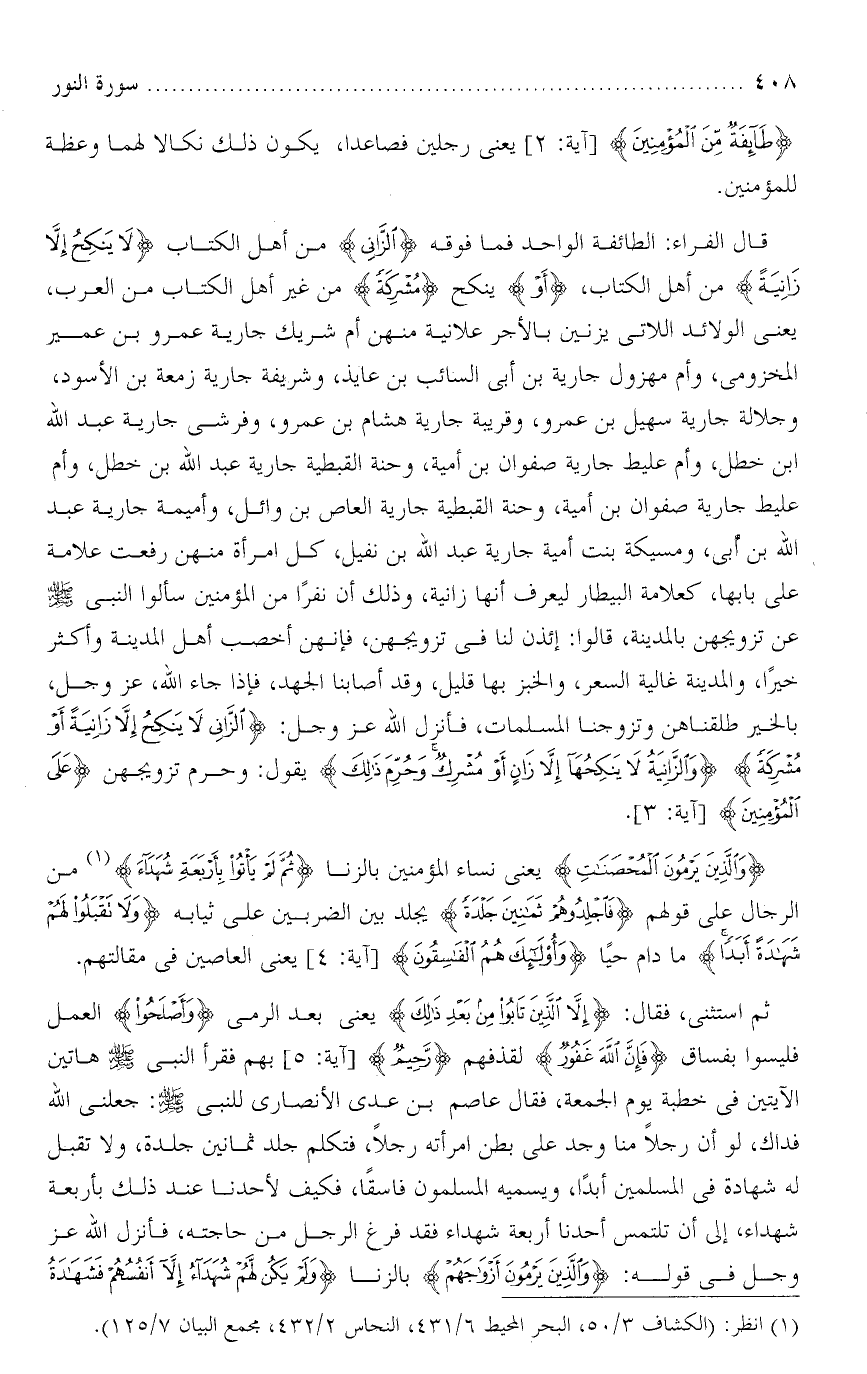 ٤٠٨ ........................................................................ سورة النور
﴿طَآئِفَةٌ مِّنَ ٱلْمُؤْمِنِينَ﴾ [آية: ٢] يعنى رجلين فصاعدا، يكون ذلك نكالا لهما وعظة
للمؤمنين.
قال الفراء: الطائفة الواحد فما فوقه ﴿ٱلزَّانِى﴾ من أهل الكتاب ﴿لَا يَنكِحُ إِلَّا
زَانِيَةً﴾ من أهل الكتاب، ﴿أَوْ﴾ ينكح ﴿مُشْرِكَةً﴾ من غير أهل الكتاب من العرب،
يعنى الولائد اللاتى يزنين بالأجر علانية منهن أم شريك جارية عمرو بن عمير
المخزومى، وأم مهزول جارية بن أبى السائب بن عايذ، وشريفة جارية زمعة بن الأسود،
وجلالة جارية سهيل بن عمرو، وقريبة جارية هشام بن عمرو، وفرشى جارية عبد الله
ابن خطل، وأم عليط جارية صفوان بن أمية، وحنة القبطية جارية عبد الله بن خطل، وأم
عليط جارية صفوان بن أمية، وحنة القبطية جارية العاص بن وائل، وأميمة جارية عبد
الله بن أبى، ومسيكة بنت أمية جارية عبد الله بن نفيل، كل امرأة منهن رفعت علامة
على بابها، كعلامة البيطار ليعرف أنها زانية، وذلك أن نفرًا من المؤمنين سألوا النبى ﷺ
عن تزويجهن بالمدينة، قالوا: إئذن لنا فى تزويجهن، فإنهن أخصب أهل المدينة وأكثر
خيرًا، والمدينة غالية السعر، والخبز بها قليل، وقد أصابنا الجهد، فإذا جاء الله، عز وجل،
بالخير طلقناهن وتزوجنا المسلمات، فأنزل الله عز وجل: ﴿ٱلزَّانِى لَا يَنكِحُ إِلَّا زَانِيَةً أَوْ
مُشْرِكَةً﴾ ﴿وَٱلزَّانِيَةُ لَا يَنكِحُهَآ إِلَّا زَانٍ أَوْ مُشْرِكٌ ۚ وَحُرِّمَ ذَٰلِكَ﴾ يقول: وحرم تزويجهن ﴿عَلَى
ٱلْمُؤْمِنِينَ﴾ [آية: ٣].
﴿وَٱلَّذِينَ يَرْمُونَ ٱلْمُحْصَنَٰتِ﴾ يعنى نساء المؤمنين بالزنا ﴿ثُمَّ لَمْ يَأْتُوا۟ بِأَرْبَعَةِ شُهَدَآءَ﴾(١) من
الرجال على قولهم ﴿فَٱجْلِدُوهُمْ ثَمَٰنِينَ جَلْدَةً﴾ يجلد بين الضربين على ثيابه ﴿وَلَا تَقْبَلُوا۟ لَهُمْ
شَهَٰدَةً أَبَدًا ۚ﴾ ما دام حيًا ﴿وَأُو۟لَٰٓئِكَ هُمُ ٱلْفَٰسِقُونَ﴾ [آية: ٤] يعنى العاصين فى مقالتهم.
ثم استثنى، فقال: ﴿إِلَّا ٱلَّذِينَ تَابُوا۟ مِنۢ بَعْدِ ذَٰلِكَ﴾ يعنى بعد الرمى ﴿وَأَصْلَحُوا۟﴾ العمل
فليسوا بفساق ﴿فَإِنَّ ٱللَّهَ غَفُورٌ﴾ لقذفهم ﴿رَّحِيمٌ﴾ [آية: ٥] بهم فقرأ النبى ﷺ هاتين
الآيتين فى خطبة يوم الجمعة، فقال عاصم بن عدى الأنصارى للنبى ﷺ: جعلنى الله
فداك، لو أن رجلاً منا وجد على بطن امرأته رجلاً، فتكلم جلد ثمانين جلدة، ولا تقبل
له شهادة فى المسلمين أبدًا، ويسميه المسلمون فاسقًا، فكيف لأحدنا عند ذلك بأربعة
شهداء، إلى أن تلتمس أحدنا أربعة شهداء فقد فرغ الرجل من حاجته، فأنزل الله عز
وجل فى قوله: ﴿وَٱلَّذِينَ يَرْمُونَ أَزْوَٰجَهُمْ﴾ بالزنا ﴿وَلَمْ يَكُن لَّهُمْ شُهَدَآءُ إِلَّآ أَنفُسُهُمْ فَشَهَٰدَةُ
(١) انظر: (الكشاف ٥٠/٣، البحر المحيط ٤٣١/٦، النحاس ٤٣٢/٢، مجمع البيان ١٢٥/٧).